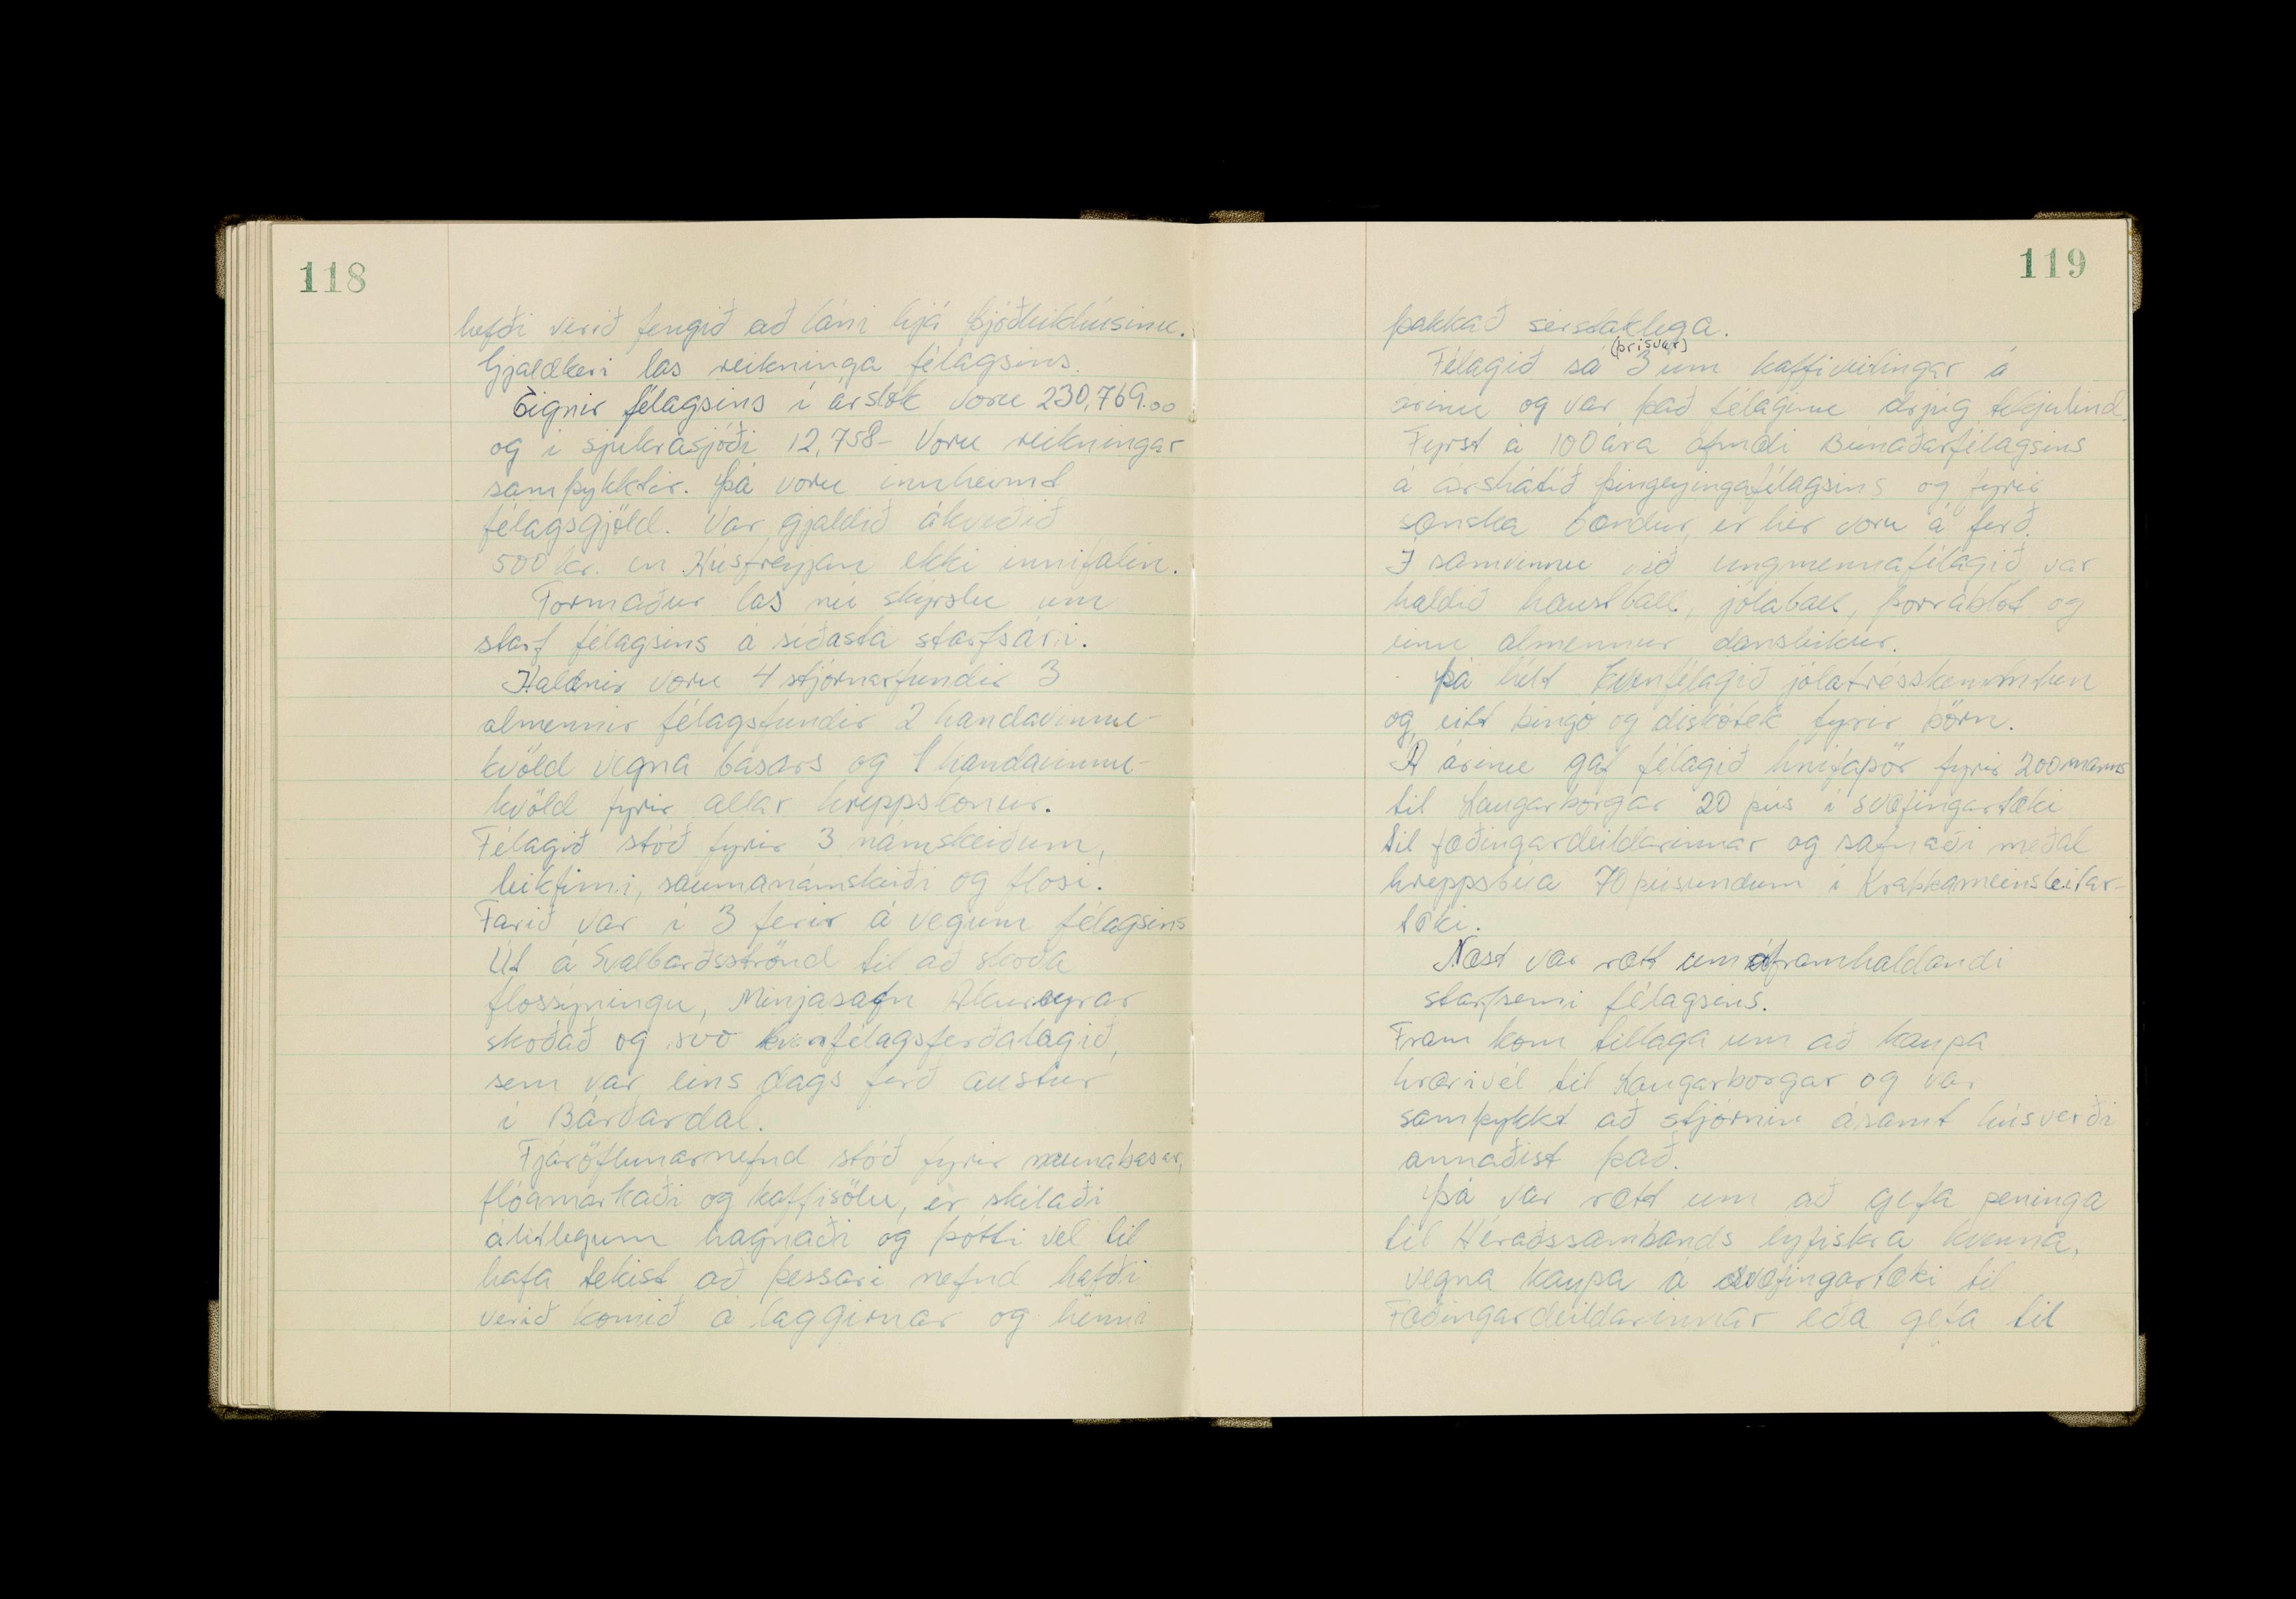 118
hefði verið fengið að láni hjá Þjóðleikhúsinu.
Gjaldkeri las reikninga félagsins.
Eignir félagsins í árslok voru 230,769.00
og í sjúkrasjóði 12,758- Voru reikningar
samþykktir. Þá voru innheimt
félagsgjöld. Var gjaldið ákveðið
500 kr. en Húsfreyjan ekki innifalin.
Formaður las nú skýrslu um
starf félagsins á síðasta starfsári.
Haldnir voru 4 stjórnarfundir 3
almennir félagsfundir 2 handavinnu-
kvöld vegna basars og 1 handavinnu-
kvöld fyrir allar hreppskonur.
Félagið stóð fyrir 3 námskeiðum,
leikfimi, saumanámskeiði og flosi.
Farið var í 3 ferir á vegum félagsins
Út á Svalbarðsströnd til að skoða
flossýningu, Minjasafn Akureyrar
skoðað og svo kvenfélagsferðalagið,
sem var eins dags ferð austur
í Bárðardal.
Fjáröflunarnefnd stóð fyrir munabasar,
flóamarkaði og kaffisölu, er skilaði
álitlegum hagnaði og þótti vel til
hafa tekist að þessari nefnd hefði
verið komið á laggirnar og henni
119
þakkað sérstaklega.
(þrisvar)
Félagið sá 3 um kaffiveitingar á
árinu og var það félaginu drjúg tekjulind.
Fyrst á 100 ára afmæli Búnaðarfélagsins
á árshátíð þingeyingafélagsins og fyrir
sænska bændur, er hér voru á ferð.
Í samvinnu við ungmennafélagið var
haldið haustball, jólaball, þorrablót og
einn almennur dansleikur.
Þá hélt Kvenfélagið jólatrésskemmtun
og eitt bingó og diskótek fyrir börn.
Á árinu gaf félagið hnífapör fyrir 200 manns
til Laugarborgar 20 þús í svæfingartæki
til fæðingardeildarinnar og safnaði meðal
hreppsbúa 70 þúsundum í Krabbameinsleitar-
tæki.
Næst var rætt um áframhaldandi
starfsemi félagsins.
Fram kom tillaga um að kaupa
hrærivél til Laugarborgar og var
samþykkt að stjórnin ásamt húsverði
annaðist það.
Þá var rætt um að gefa peninga
til Héraðssambands eyfiskra kvenna,
vegna kaupa á svæfingartæki til
Fæðingardeildarinnar eða gefa til